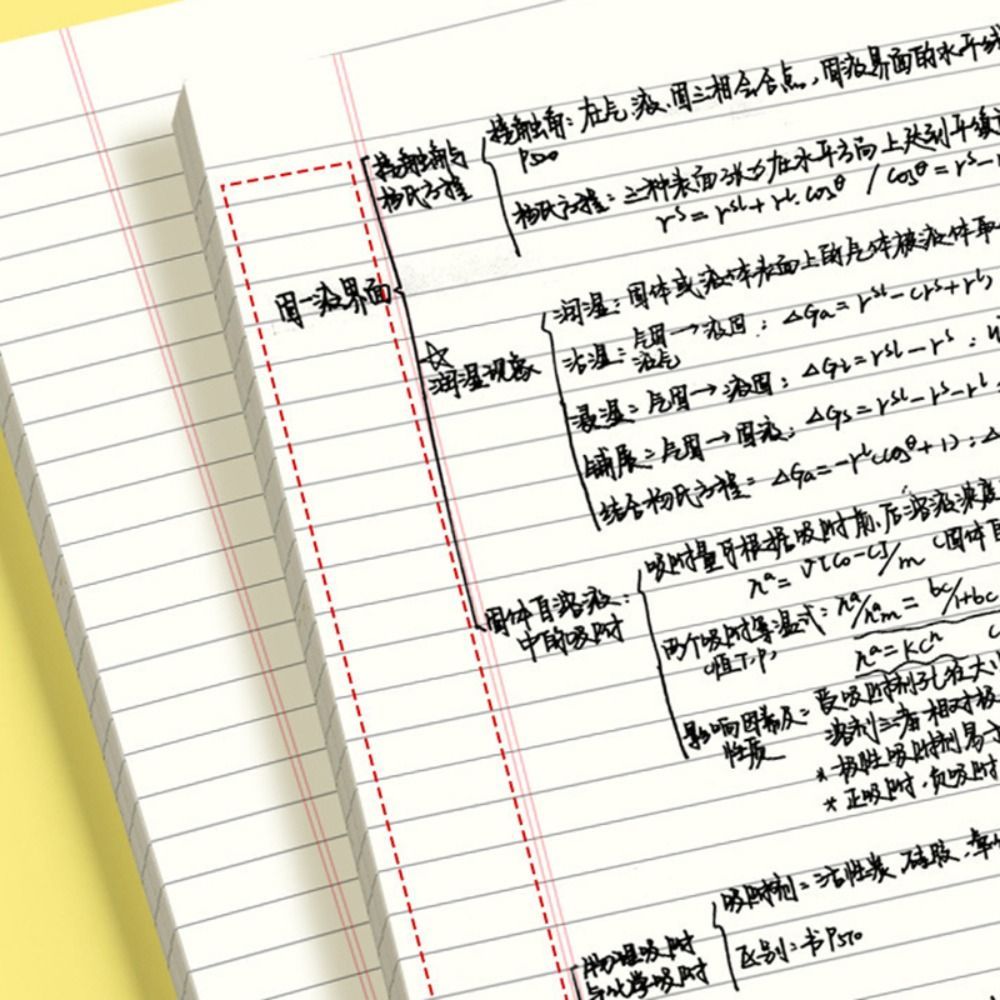 接触角与
杨氏方程
接触角：在气、液、固三相会合点，固液界面的水平线
P520
杨氏方程：三种表面张力在水平方向上达到平缓
rs = rsl + rl. cosθ / cosθ = rs-
固一液界面
☆
润湿现象
润湿：固体或液体表面上的气体被液体取
沾湿：气固→液固：△Ga = rsl - (rs + rl)
液气
浸湿：气固→液固：△Gi = rsl - rs：
铺展：气固→固液：△Gs = rsl - rs - rl
结合杨氏方程：△Ga = -rl(cosθ+1)：△
固体自溶液：
中的吸附
吸附量可根据吸附前、后溶液浓度
na = V(c0-c)/m (固体自
两个吸附等温式：na/nam = bc/1+bc
(恒T,P)
na = kcn
影响因素及：受吸附剂孔径大小
性质 溶剂三者相对极
*极性吸附剂易
*正吸附，负吸附
物理吸附
与化学吸附
吸附剂：活性炭，硅胶，
区别：书P510